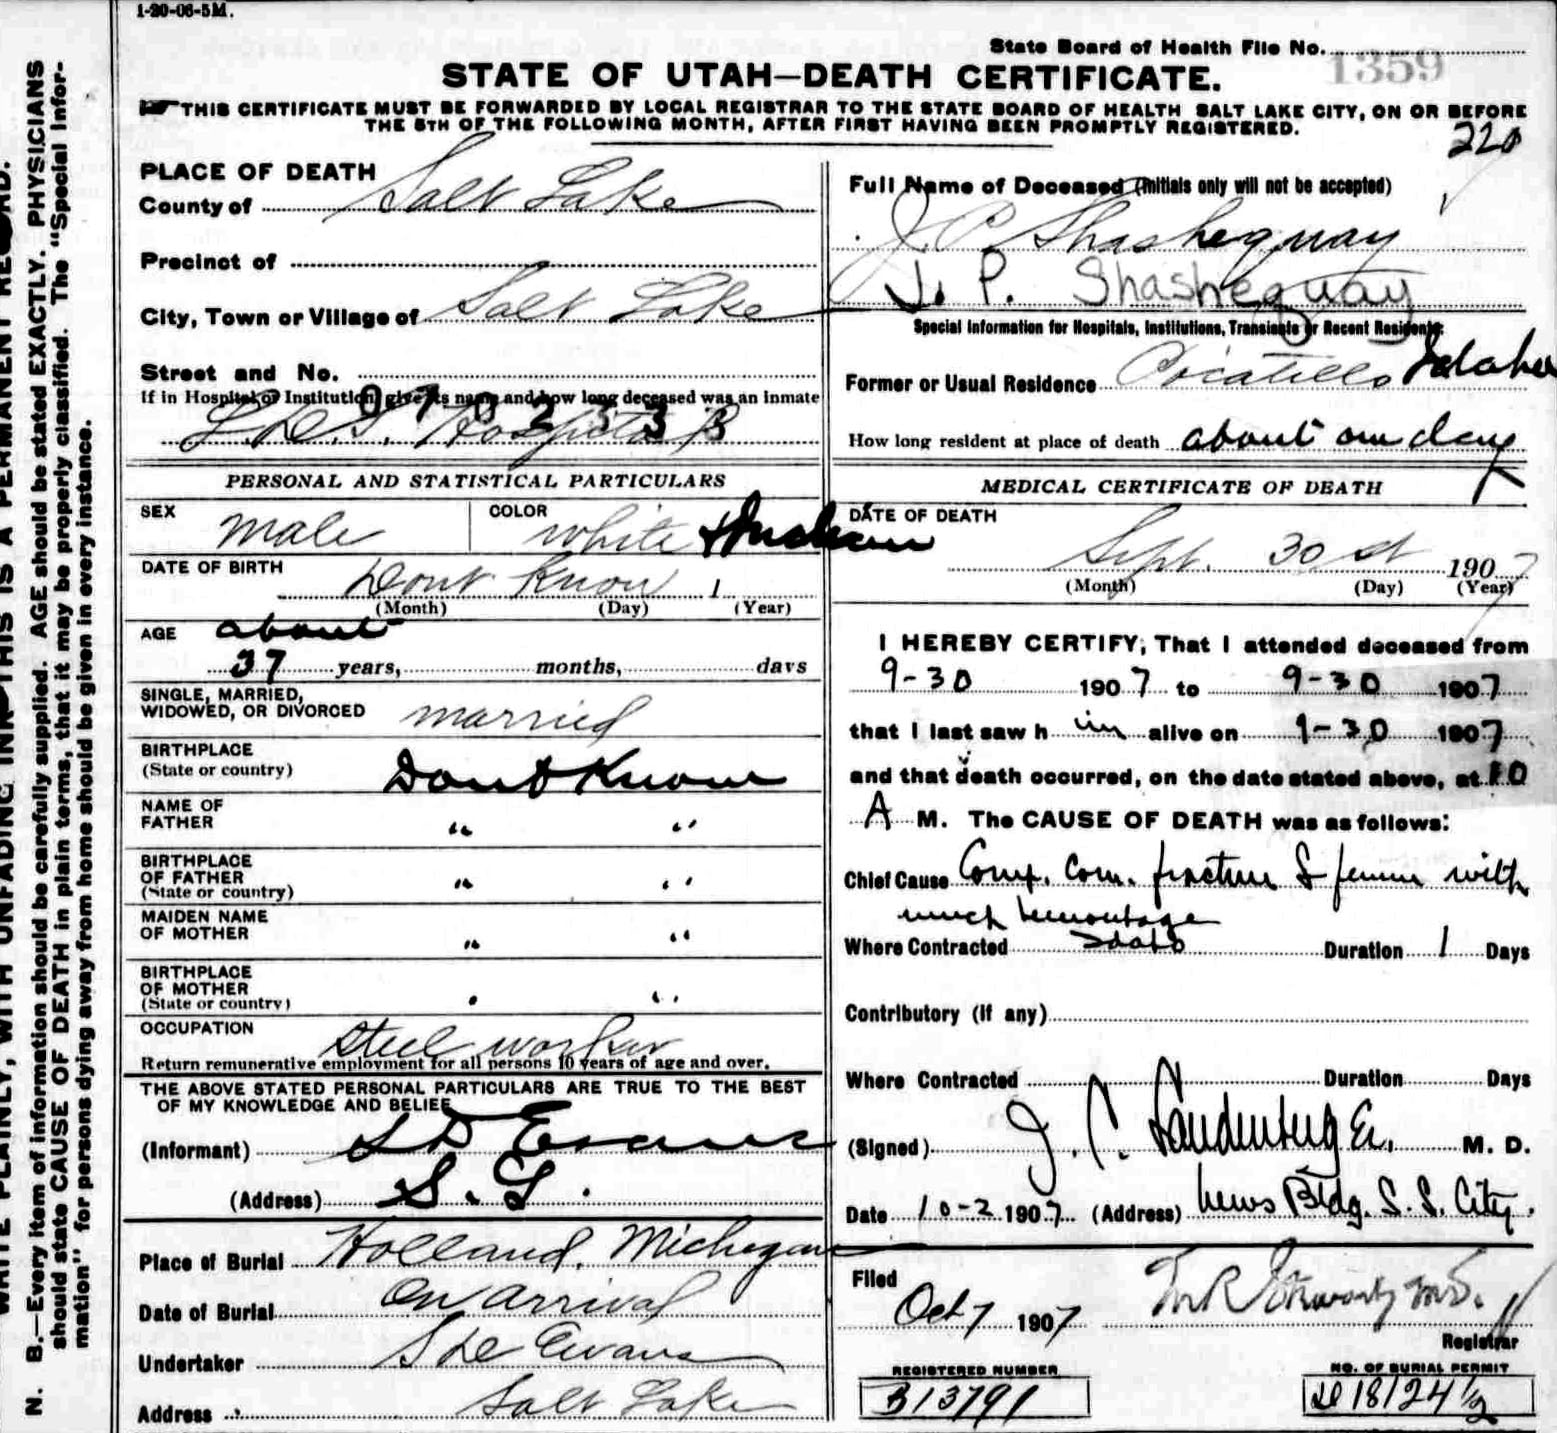 1-20-06-5M.
State Board of Health File No. 1359
STATE OF UTAH—DEATH CERTIFICATE.
THIS CERTIFICATE MUST BE FORWARDED BY LOCAL REGISTRAR TO THE STATE BOARD OF HEALTH SALT LAKE CITY, ON OR BEFORE
THE 5TH OF THE FOLLOWING MONTH, AFTER FIRST HAVING BEEN PROMPTLY REGISTERED.
220
PLACE OF DEATH
County of Salt Lake
Precinct of
City, Town or Village of Salt Lake
Street and No.
If in Hospital or Institution, give its name and how long deceased was an inmate
0702333
L.D.S. Hospital
PERSONAL AND STATISTICAL PARTICULARS
SEX male COLOR white Indian
DATE OF BIRTH
Dont Know 1
(Month) (Day) (Year)
AGE about
37 years, months, days
SINGLE, MARRIED,
WIDOWED, OR DIVORCED married
BIRTHPLACE
(State or country) Dont Know
NAME OF
FATHER " "
BIRTHPLACE
OF FATHER
(State or country) " "
MAIDEN NAME
OF MOTHER " "
BIRTHPLACE
OF MOTHER
(State or country) " "
OCCUPATION Steel worker
Return remunerative employment for all persons 10 years of age and over.
THE ABOVE STATED PERSONAL PARTICULARS ARE TRUE TO THE BEST
OF MY KNOWLEDGE AND BELIEF
(Informant) S D Evans
(Address) S. L.
Place of Burial Holland, Michegan
Date of Burial On Arrival
Undertaker S D Evans
Address Salt Lake
Full Name of Deceased (Initials only will not be accepted)
J. P. Shashequay
J. P. Shashequay
Special Information for Hospitals, Institutions, Transients or Recent Residents:
Former or Usual Residence Pocatello Idaho
How long resident at place of death about one day
MEDICAL CERTIFICATE OF DEATH
DATE OF DEATH
Sept. 30 st 1907
(Month) (Day) (Year)
I HEREBY CERTIFY, That I attended deceased from
9-30 1907 to 9-30 1907
that I last saw h im alive on 9-30 1907
and that death occurred, on the date stated above, at 10
A M. The CAUSE OF DEATH was as follows:
Chief Cause Comp. Com. fracture of femur with
much hemorrhage
Where Contracted Idaho Duration 1 Days
Contributory (if any)
Where Contracted Duration Days
(Signed) J. C. Landenberger. M. D.
Date 10-2 1907 (Address) News Bldg. S. L. City.
Filed
Oct 7 1907
Registrar
REGISTERED NUMBER
B13791
NO. OF BURIAL PERMIT
D 18124 1/2
WRITE PLAINLY, WITH UNFADING INK—THIS IS A PERMANENT RECORD.
N. B.—Every item of information should be carefully supplied. AGE should be stated EXACTLY. PHYSICIANS
should state CAUSE OF DEATH in plain terms, that it may be properly classified. The "Special Infor-
mation" for persons dying away from home should be given in every instance.